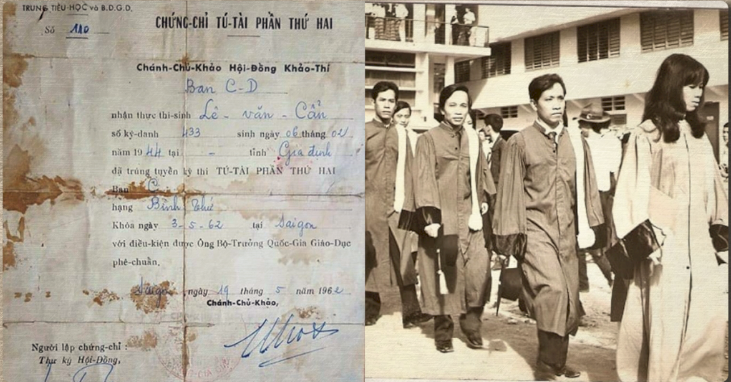 TRUNG TIỂU-HỌC và B.D.G.D.
Số 110
CHỨNG-CHỈ TÚ-TÀI PHẦN THỨ HAI
Chánh-Chủ-Khảo Hội-Đồng Khảo-Thí
Ban C-D
nhận thực thí-sinh Lê-văn-Cẩn
số ký-danh 433 sinh ngày 06 tháng 02
năm 1944 tại - tỉnh Gia định
đã trúng tuyển kỳ thi TÚ-TÀI PHẦN THỨ HAI
Ban C
hạng Bình thứ
Khóa ngày 3-5-62 tại Saigon
với điều-kiện được Ông Bộ-Trưởng Quốc-Gia Giáo-Dục
phê-chuẩn.
Saigon, ngày 19 tháng 5 năm 1962
Chánh-Chủ-Khảo,
Người lập chứng-chỉ :
Thư ký Hội-Đồng,